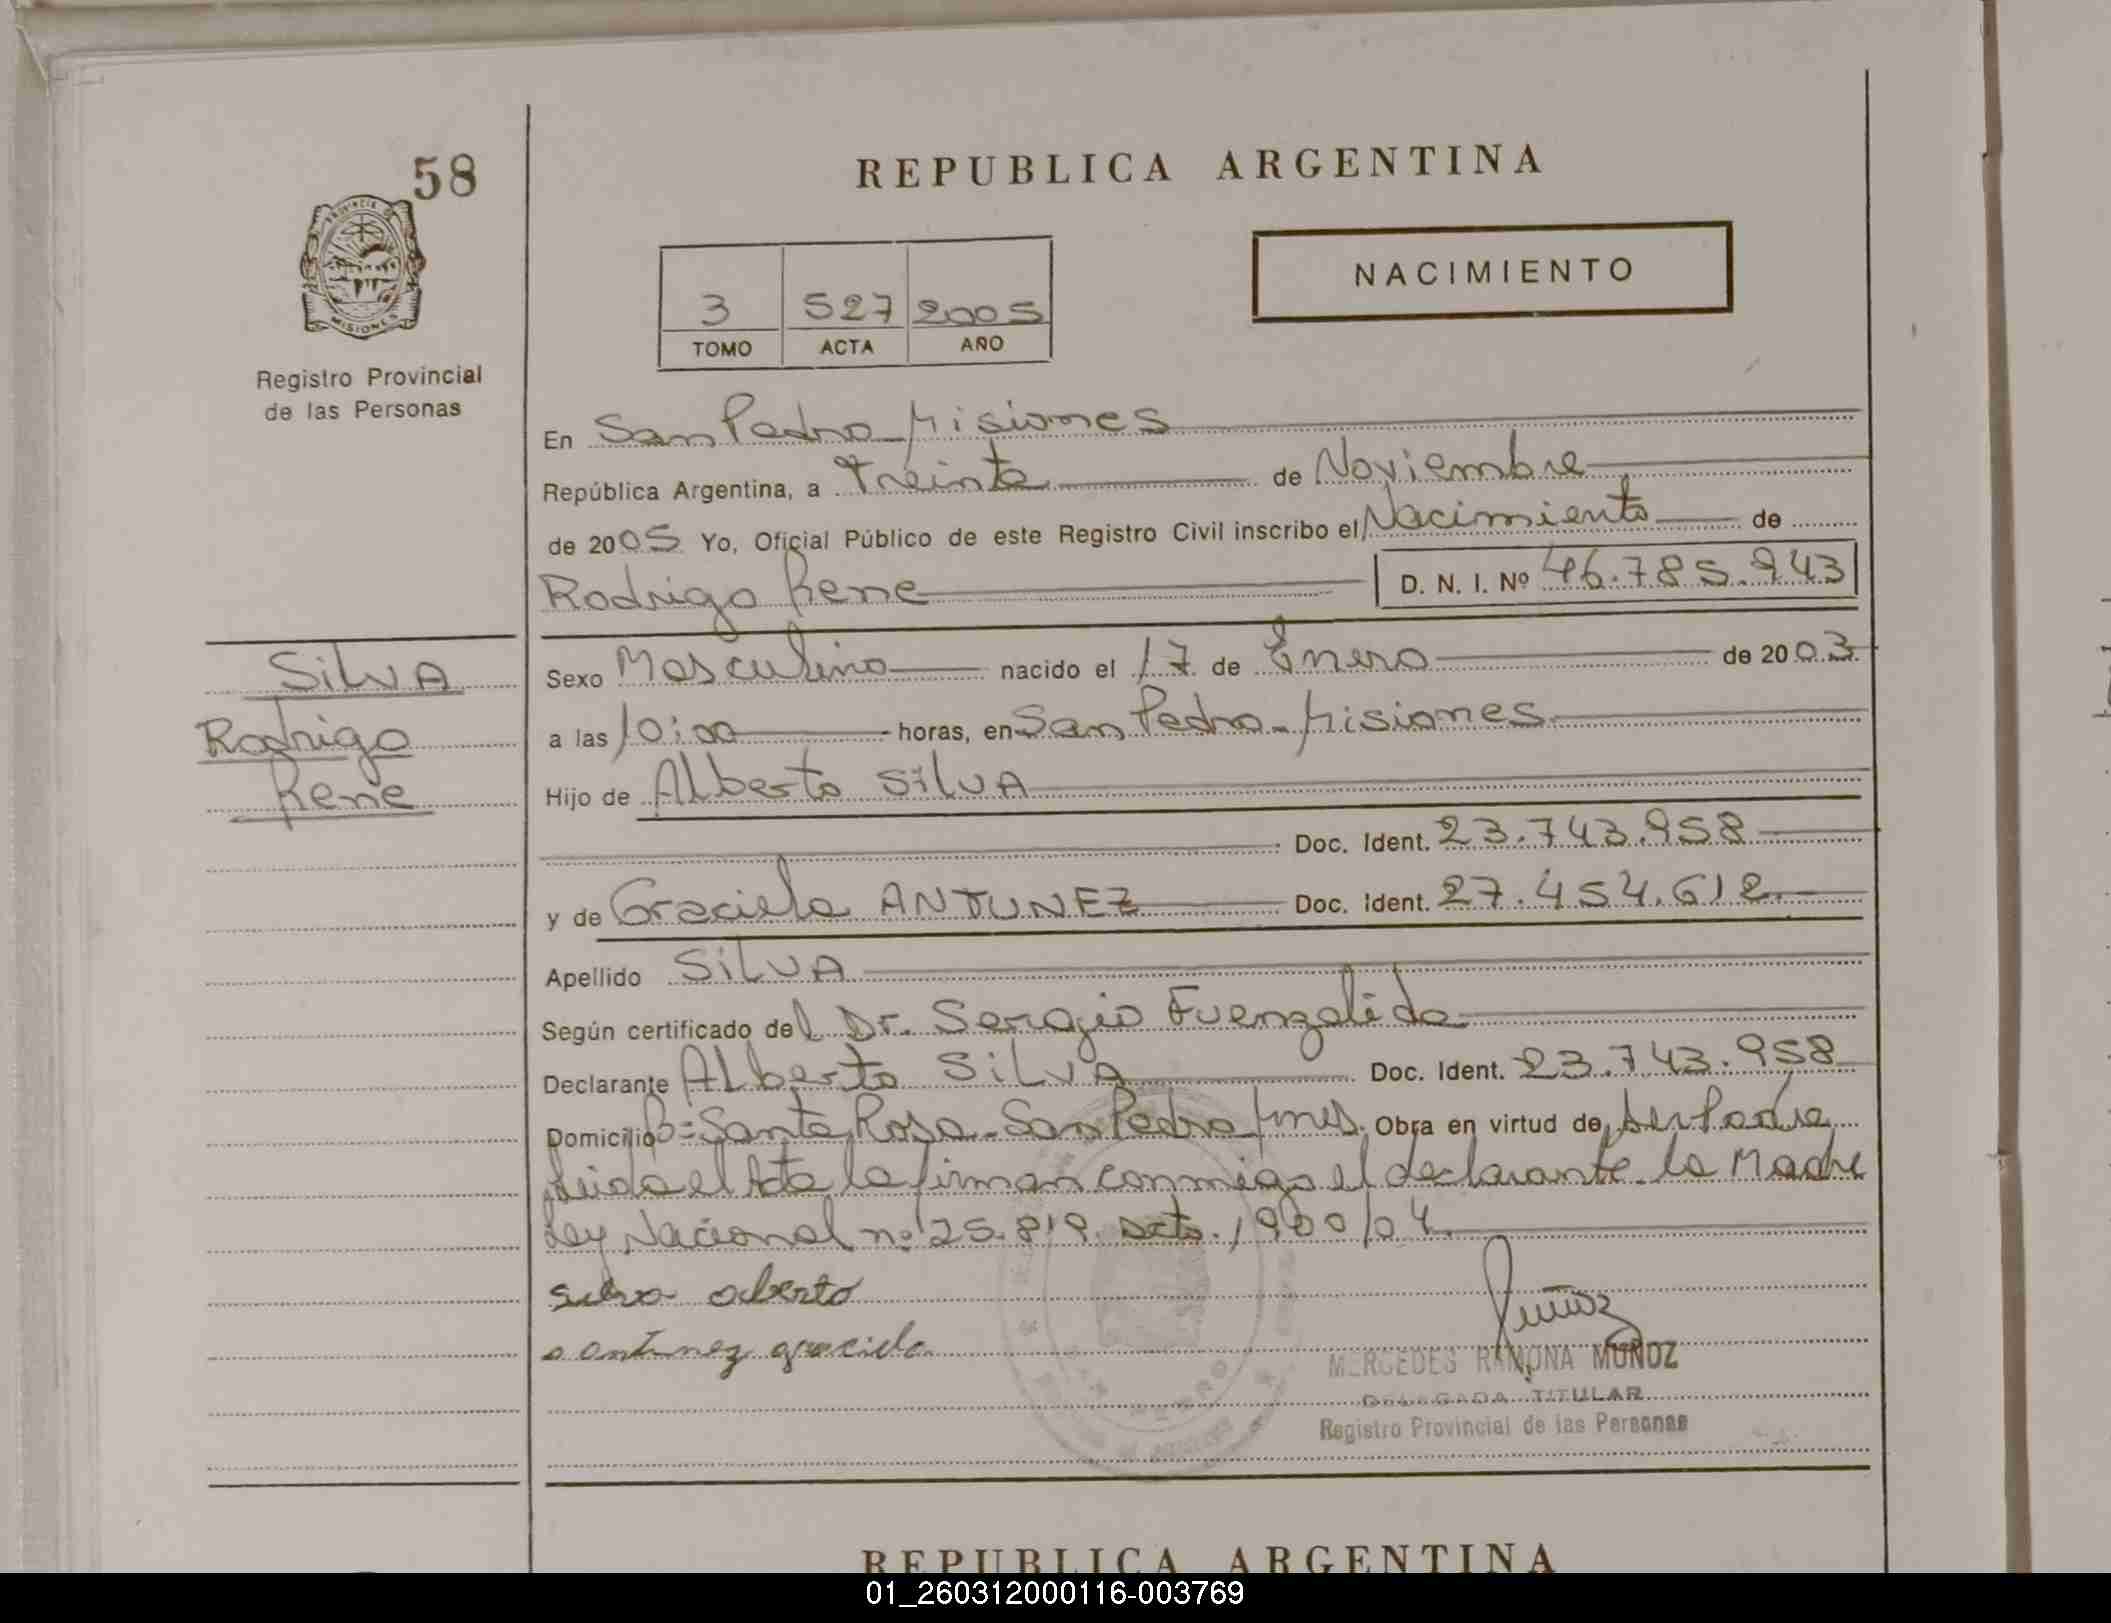 58
PROVINCIA DE
MISIONES
Registro Provincial
de las Personas
REPUBLICA ARGENTINA
3 527 2005
TOMO ACTA AÑO
NACIMIENTO
En San Pedro Misiones
República Argentina, a Treinta de Noviembre
de 2005 Yo, Oficial Público de este Registro Civil inscribo el Nacimiento de
Rodrigo Rene D. N. I. Nº 46.785.943
SILVA
Rodrigo
Rene
Sexo Masculino nacido el 17 de Enero de 2003
a las 10:00 horas, en San Pedro - Misiones
Hijo de Alberto SILVA
Doc. Ident. 23.743.958
y de Graciela ANTUNEZ Doc. Ident. 27.454.612
Apellido SILVA
Según certificado del Dr. Sergio Fuenzalida
Declarante Alberto SILVA Doc. Ident. 23.743.958
Domicilio Bº Santa Rosa - San Pedro Mnes. Obra en virtud de ser Padre
Leida el Acta la firman conmigo el declarante. la Madre
Ley Nacional nº 25.819. Dcto. 1900/04
silva alberto
antunez graciela
MERCEDES RAMONA MUÑOZ
DELEGADA TITULAR
Registro Provincial de las Personas
REPUBLICA ARGENTINA
01_260312000116-003769